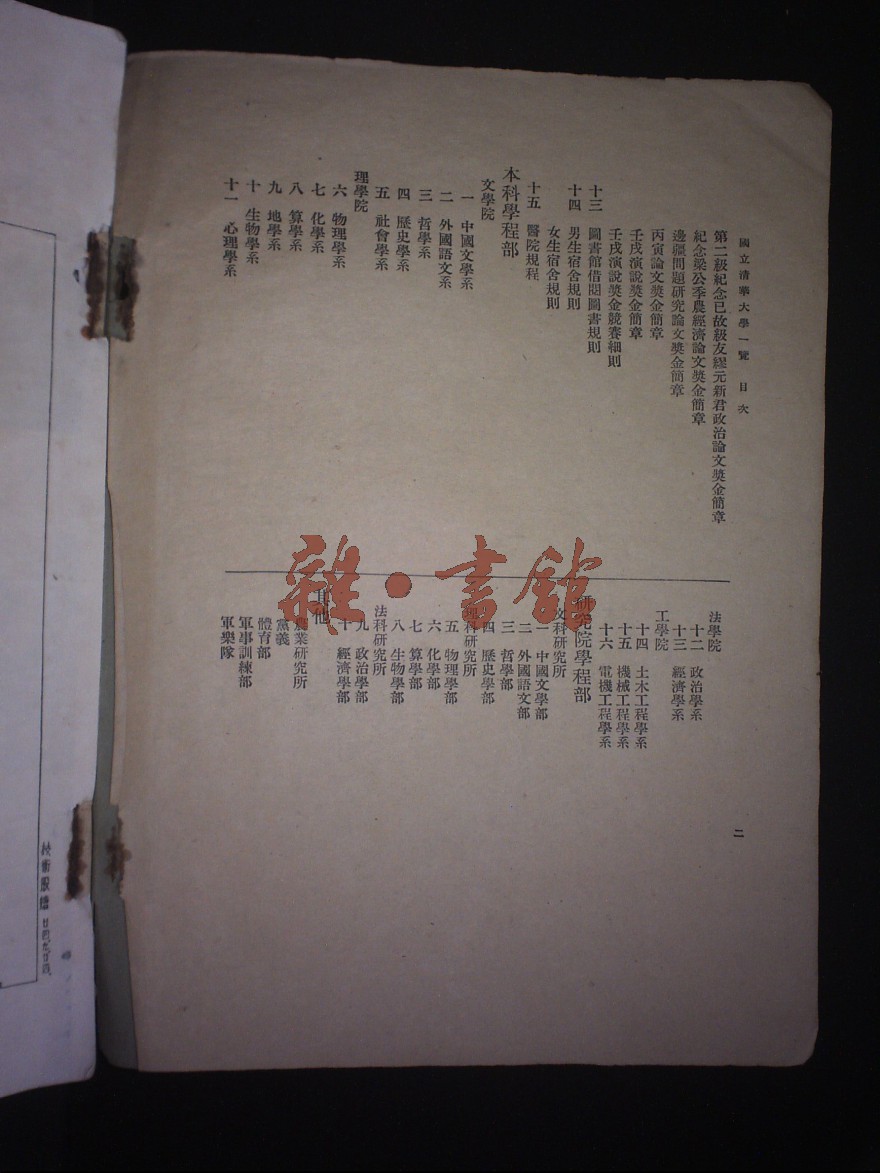 國立清華大學一覽 目次
第二級紀念已故級友繆元新君政治論文獎金簡章
紀念梁公季農經濟論文獎金簡章
邊疆問題研究論文獎金簡章
丙寅論文獎金簡章
壬戌演說獎金簡章
壬戌演說獎金競賽細則
十三 圖書館借閱圖書規則
十四 男生宿舍規則
女生宿舍規則
十五 醫院規程
本科學程部
文學院
一 中國文學系
二 外國語文系
三 哲學系
四 歷史學系
五 社會學系
理學院
六 物理學系
七 化學系
八 算學系
九 地學系
十 生物學系
十一 心理學系
法學院
十二 政治學系
十三 經濟學系
工學院
十四 土木工程學系
十五 機械工程學系
十六 電機工程學系
研究院學程部
文科研究所
一 中國文學部
二 外國語文部
三 哲學部
四 歷史學部
理科研究所
五 物理學部
六 化學部
七 算學部
八 生物學部
法科研究所
九 政治學部
十 經濟學部
其他
農業研究所
黨義
體育部
軍事訓練部
軍樂隊
二
雜·書館